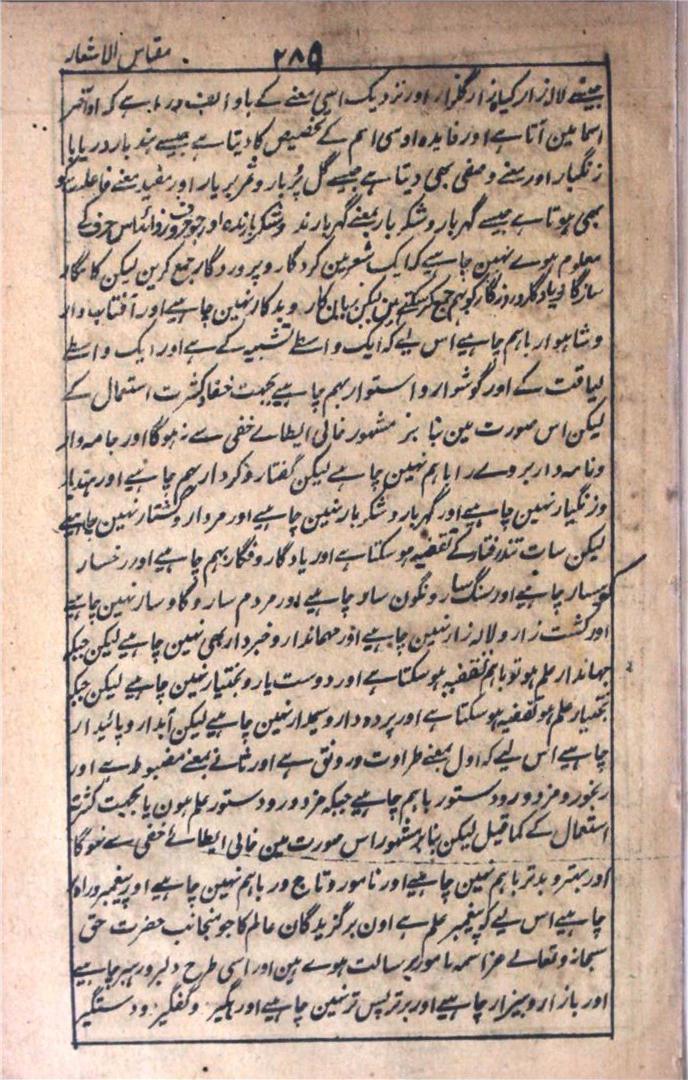 مقیاس الاشعار
۲۸۵
جیسے لالہ زار کیا زار گلزار اور نزدیک اسی معنے کے با و الف و راء ہے کہ اواخر
اسما مین آتا ہے اور فایدہ اوسی اسم کے تخصیص کا دیتا ہے جیسے ہند بار دریا با
زنگبار اور معنے وصفی بھی دیتا ہے جیسے گل پُر بار و شجر پر بار اور مفید معنے فاعلیت
بھی ہوتا ہے جیسے گہر بار و شکر بار بمعنے گہر بارندہ و شکر بارندہ اور جو حروف زوائد اس حرف کے
معلوم ہوے نہین چاہیے کہ ایک شعر مین کردگار و پروردگار جمع کرین لیکن کامگار
سازگار و یادگار و روزگار کو بہم جمع کر سکتے ہین لیکن کار و بدکار نہین چاہیے اور آفتاب وار
و شاہوار باہم چاہیے اس لیے کہ ایک واسطے تشبیہ کے ہے اور ایک واسطے
لیاقت کے اور گوشوار و استوار بہم چاہیے بجہت خفا و کثرت استعمال کے
لیکن اس صورت مین بنا بر مشہور خالی ایطاے خفی سے نہ ہوگا اور جامہ وار
و نامہ وار بروے را باہم نہین چاہیے لیکن گفتار و کردار بہم چاہیے اور ہندبار
و زنگبار نہین چاہیے اور گہر بار و شکر بار نہین چاہیے اور مردار و کشتار نہین چاہیے
لیکن سات تند رفتار کے تقفیہ ہو سکتا ہے اور یادگار و فگار بہم چاہیے اور رخسار
کوہسار چاہیے اور سنگسار و نگون سار چاہیے اور مردم سار و گاو سار نہین چاہیے
اور کشت زار و لالہ زار نہین چاہیے اور جہاندار و خبردار بھی نہین چاہیے لیکن جبکہ
جہاندار علم ہو تو باہم تقفیہ ہو سکتا ہے اور دوست یار و بختیار نہین چاہیے لیکن جبکہ
بختیار علم ہو تقفیہ ہو سکتا ہے اور پردہ دار و سیلدار نہین چاہیے لیکن آبدار و پائیدار
چاہیے اس لیے کہ اول بمعنے طراوت و رونق ہے اور ثانے بمعنے مضبوط ہے اور
رنجور و مزدور و دستور باہم چاہیے جبکہ مزدور و دستور علم ہون یا بجہت کثرت
استعمال کے کما قیل لیکن بنا بر مشہور اس صورت مین خالی ایطائے خفی سے نہوگا
اور بہتر و بدتر باہم نہین چاہیے اور نامور و تاج ور باہم نہین چاہیے اور پیغمبر و راہ
چاہیے اس لیے کہ پیغمبر علم ہے اون برگزیدگان عالم کا جو منجانب حضرت حق
سبحانہ و تعالے عز اسمہ مامور برسالت ہوے ہین اور اسی طرح دلبر و رہبر چاہیے
اور بازار و بیزار چاہیے اور برتر پس تر نہین چاہیے اور و کفگیر و دستگیر